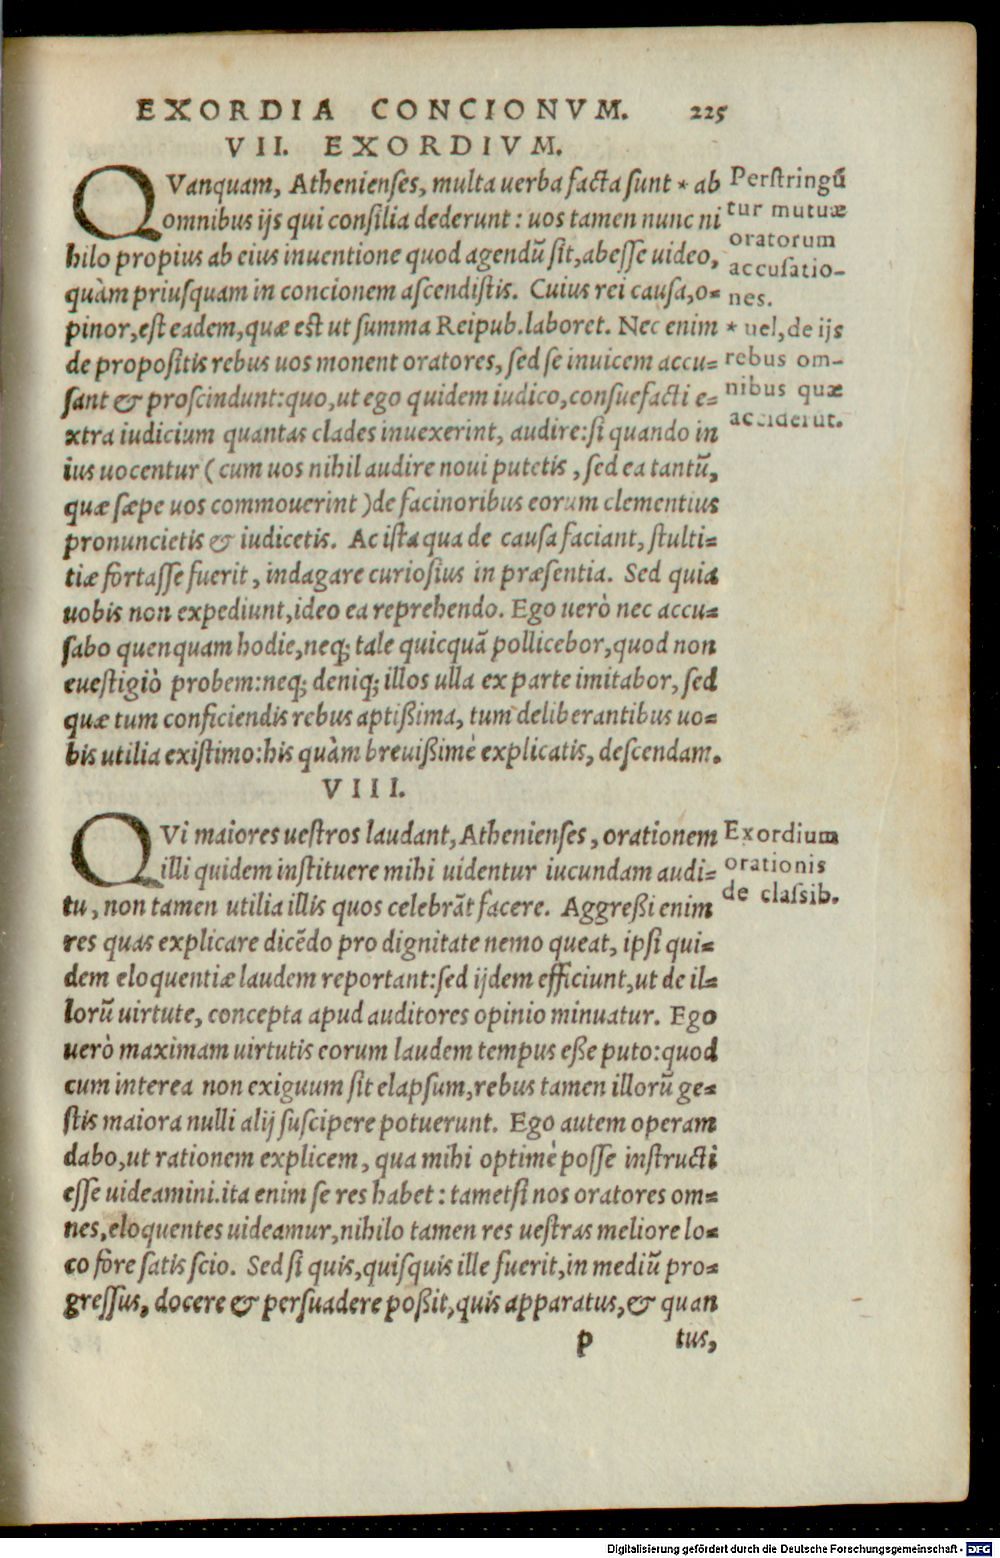 EXORDIA CONCIONVM. 225
VII. EXORDIVM.
QVanquam, Athenienses, multa uerba facta sunt * ab
omnibus ijs qui consilia dederunt: uos tamen nunc ni
hilo propius ab eius inuentione quod agendū sit, abesse uideo,
quàm priusquam in concionem ascendistis. Cuius rei causa, o=
pinor, est eadem, quæ est ut summa Reipub. laboret. Nec enim
de propositis rebus uos monent oratores, sed se inuicem accu=
sant & proscindunt: quo, ut ego quidem iudico, consuefacti e=
xtra iudicium quantas clades inuexerint, audire: si quando in
ius uocentur (cum uos nihil audire noui putetis, sed ea tantū,
quæ sæpe uos commouerint) de facinoribus eorum clementius
pronuncietis & iudicetis. Ac ista qua de causa faciant, stulti=
tiæ fortasse fuerit, indagare curiosius in præsentia. Sed quia
uobis non expediunt, ideo ea reprehendo. Ego uerò nec accu=
sabo quenquam hodie, neq; tale quicquā pollicebor, quod non
euestigiò probem: neq; deniq; illos ulla ex parte imitabor, sed
quæ tum conficiendis rebus aptißima, tum deliberantibus uo=
bis utilia existimo: his quàm breuißimè explicatis, descendam.
Perstringū
tur mutuæ
oratorum
accusatio-
nes.
* uel, de ijs
rebus om-
nibus quæ
acciderūt.
VIII.
QVi maiores uestros laudant, Athenienses, orationem
illi quidem instituere mihi uidentur iucundam audi=
tu, non tamen utilia illis quos celebrāt facere. Aggreßi enim
res quas explicare dicēdo pro dignitate nemo queat, ipsi qui=
dem eloquentiæ laudem reportant: sed ijdem efficiunt, ut de il=
lorū uirtute, concepta apud auditores opinio minuatur. Ego
uerò maximam uirtutis eorum laudem tempus eße puto: quod
cum interea non exiguum sit elapsum, rebus tamen illorū ge=
stis maiora nulli alij suscipere potuerunt. Ego autem operam
dabo, ut rationem explicem, qua mihi optimè posse instructi
esse uideamini. ita enim se res habet: tametsi nos oratores om=
nes, eloquentes uideamur, nihilo tamen res uestras meliore lo=
co fore satis scio. Sed si quis, quisquis ille fuerit, in mediū pro=
gressus, docere & persuadere poßit, quis apparatus, & quan
Exordium
orationis
de classib.
p tus,
Digitalisierung gefördert durch die Deutsche Forschungsgemeinschaft - DFG